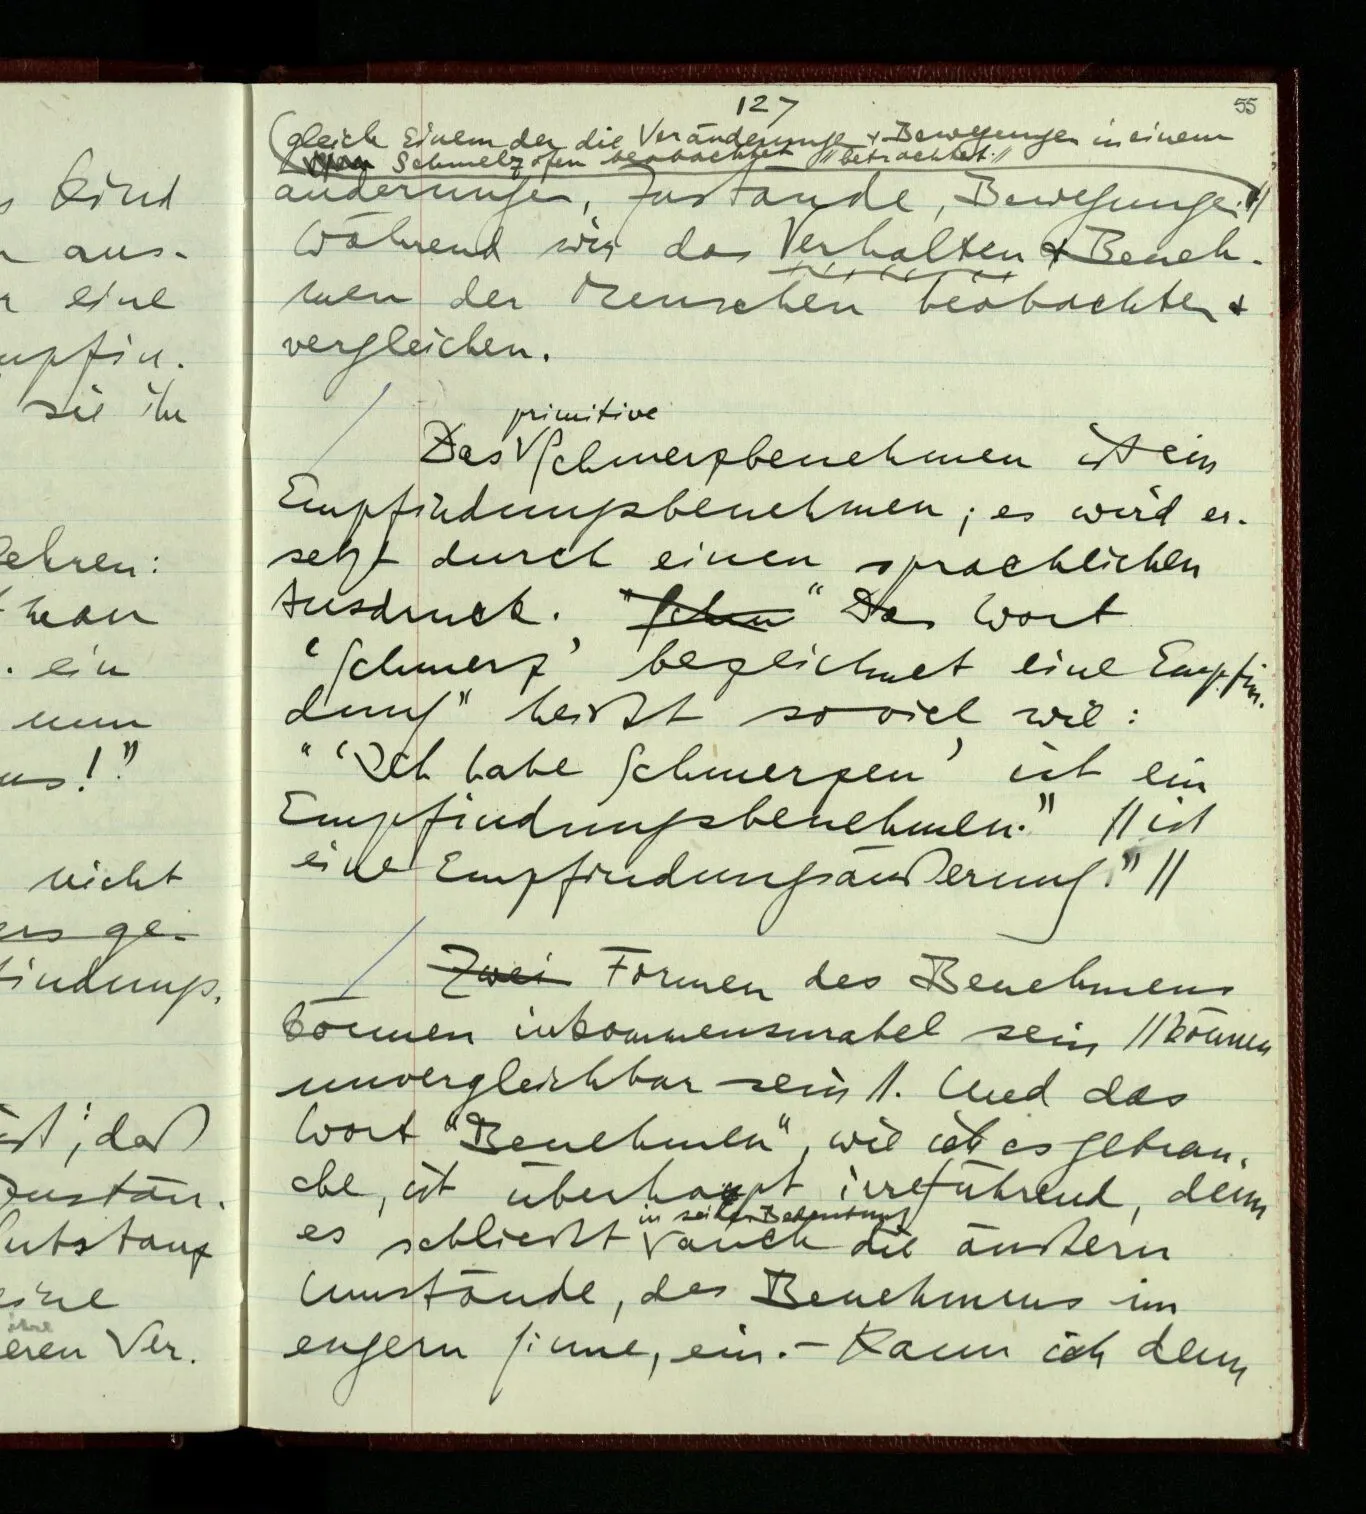 s Kind
n aus-
r eine
mpfin-
sie ihr
lehren:
t man
. ein
nun
us!"
nicht
ers ge-
findungs-
ist; daß
Zustän-
Substanz
eine
ihre
eren Ver-
127
55
(gleich Einem der die Veränderungen & Bewegungen in einem
Schmelzofen beobachtet //betrachtet.//
änderungen, Zustände, Bewegungen.//
Während wir das Verhalten & Beneh-
men der Menschen beobachten &
vergleichen.
primitive
Das Schmerzbenehmen ist ein
Empfindungsbenehmen; es wird er-
setzt durch einen sprachlichen
Ausdruck. "Schm "Das Wort
'Schmerz' bezeichnet eine Empfin-
dung" heißt soviel wie:
"'Ich habe Schmerzen' ist ein
Empfindungsbenehmen." //ist
eine Empfindungsäußerung."//
Zwei Formen des Benehmens
können inkommensurabel sein //können
unvergleichbar sein//. Und das
Wort "Benehmen", wie ich es gebrau-
che, ist überhaupt irreführend, denn
in seiner Bedeutung
es schließt auch die äußern
Umstände, des Benehmens im
engern Sinne, ein. – Kann ich denn